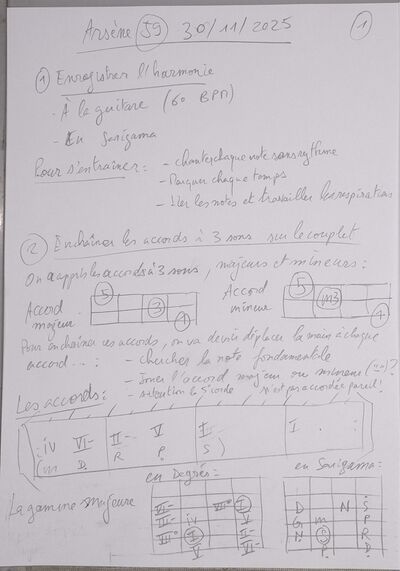 Arsène (59) 30/11/2025
1
① Enregistrer l'harmonie
- À la guitare (60 BPM)
- En Sarigama
Pour s'entraîner : - chanter chaque note sans rythme
- Marquer chaque temps
- Lier les notes et travailler les respirations
② Enchaîner les accords à 3 sons sur le couplet
On a appris les accords à 3 sons, majeurs et mineurs :
Accord majeur
5 3 1
Accord mineur
5 m3 1
Pour enchaîner ces accords, on va devoir déplacer la main à chaque
accord ... : - chercher la note fondamentale
- Jouer l'accord majeur ou mineur (" - ")?
- attention la 5 corde n'est pas accordée pareil!
Les accords :
: iv VI- II- V I I . :
(m D R P S )
en Degrés : en Sarigama :
La gamme majeure
VI- VII° I D N S
V- iv II- G m P
VII° I VI- N S R
V V P D